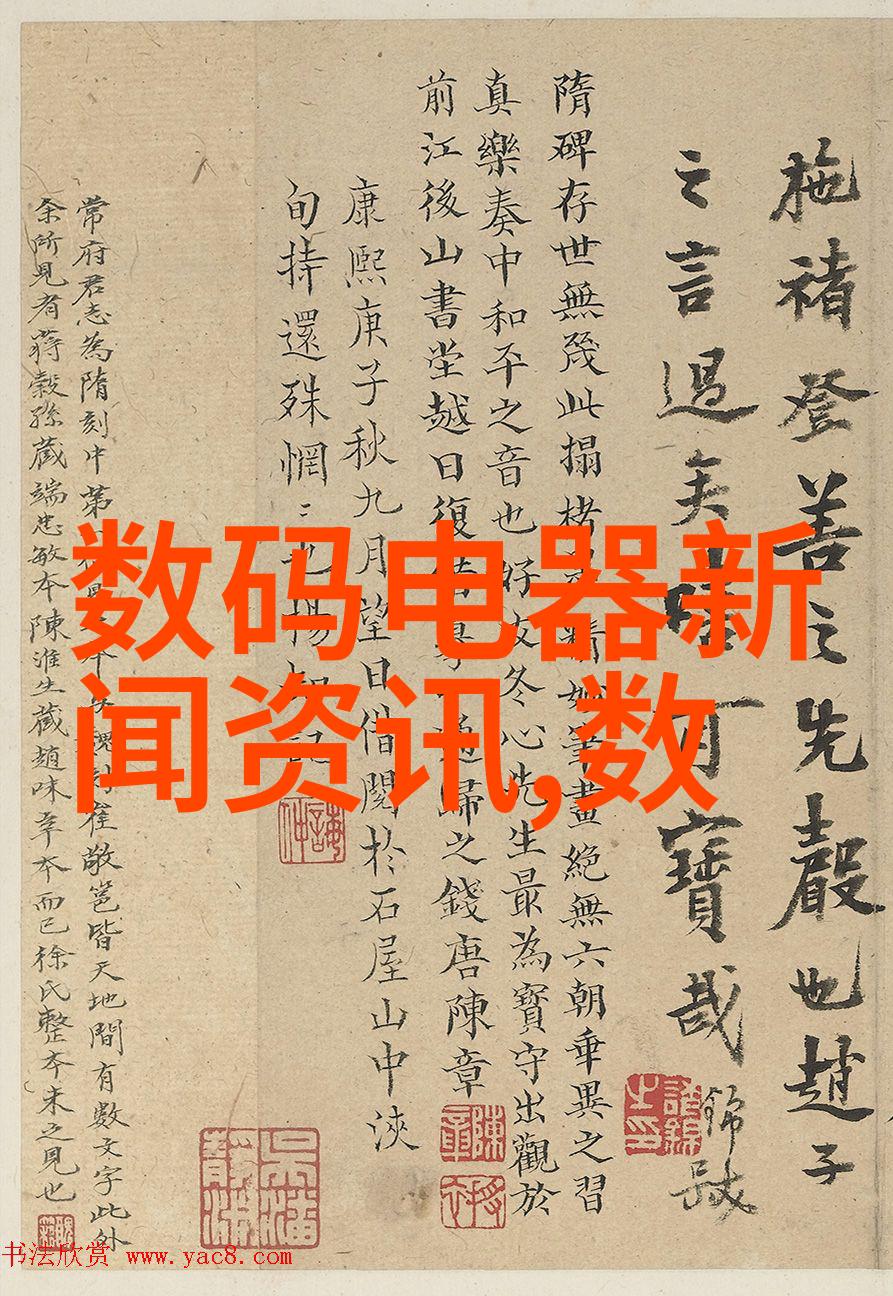 褚登善之先聲也趙子
之言過矣 可寶哉
隋碑存世無幾此搨 精妙筆畫絕無六朝乖異之習
真樂奏中和平之音也好友冬心先生最為寶守出觀於
前江後山書堂越日復 歸之錢唐陳章
康熙庚子秋九月望日借閱於石屋山中浹
旬持還殊惘〻 記
常府君志為隋刻中第 崔敬邕皆天地間有數文字此外
余所見有蔣穀孫藏端忠敏本陳淮生藏趙味辛本而已徐氏整本未之見也
数码电器新
闻资讯,数
书法欣赏 www.yac8.com